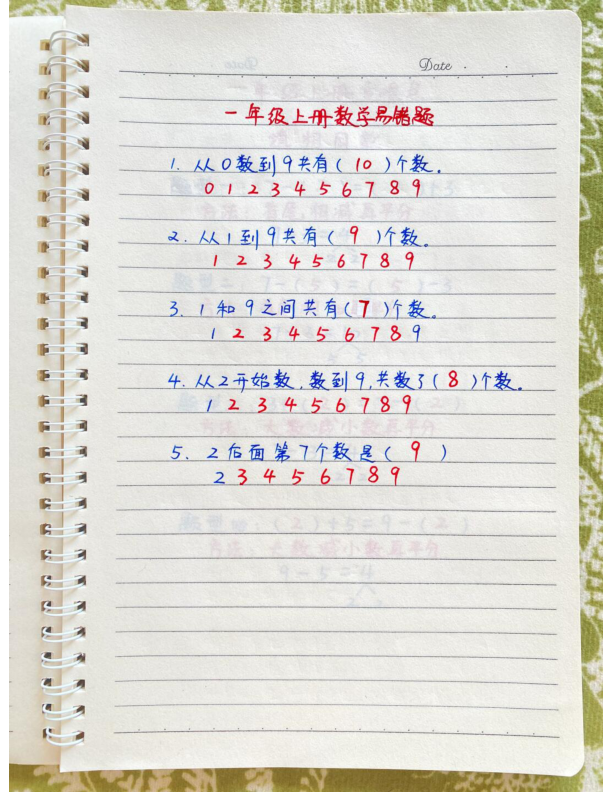 Date
一年级上册数学易错题
1. 从0数到9共有( 10 )个数。
0 1 2 3 4 5 6 7 8 9
2. 从1到9共有( 9 )个数。
1 2 3 4 5 6 7 8 9
3. 1和9之间共有( 7 )个数。
1 2 3 4 5 6 7 8 9
4. 从2开始数,数到9,共数了( 8 )个数。
1 2 3 4 5 6 7 8 9
5. 2后面第7个数是( 9 )
2 3 4 5 6 7 8 9